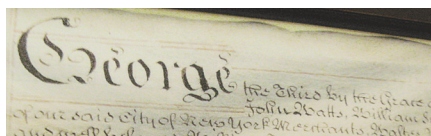 George the Third by the Grace
John Watts, William
of our said City of New York Merchants
and